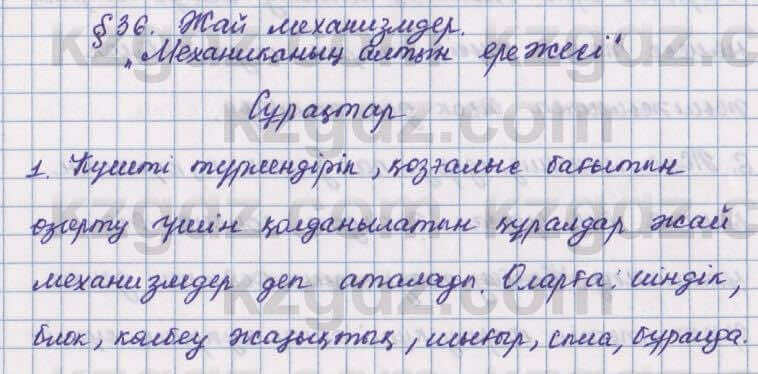 §36. Жай механизмдер.
„Механиканың алтын ережесі"
Сұрақтар
1. Күшті түрлендіріп, қозғалыс бағытын
өзгерту үшін қолданылатын құралдар жай
механизмдер деп аталады. Оларға: иіндік,
блок, көлбеу жазықтық, шығыр, сына, бұранда.
kzgdz.com
kzgdz.com